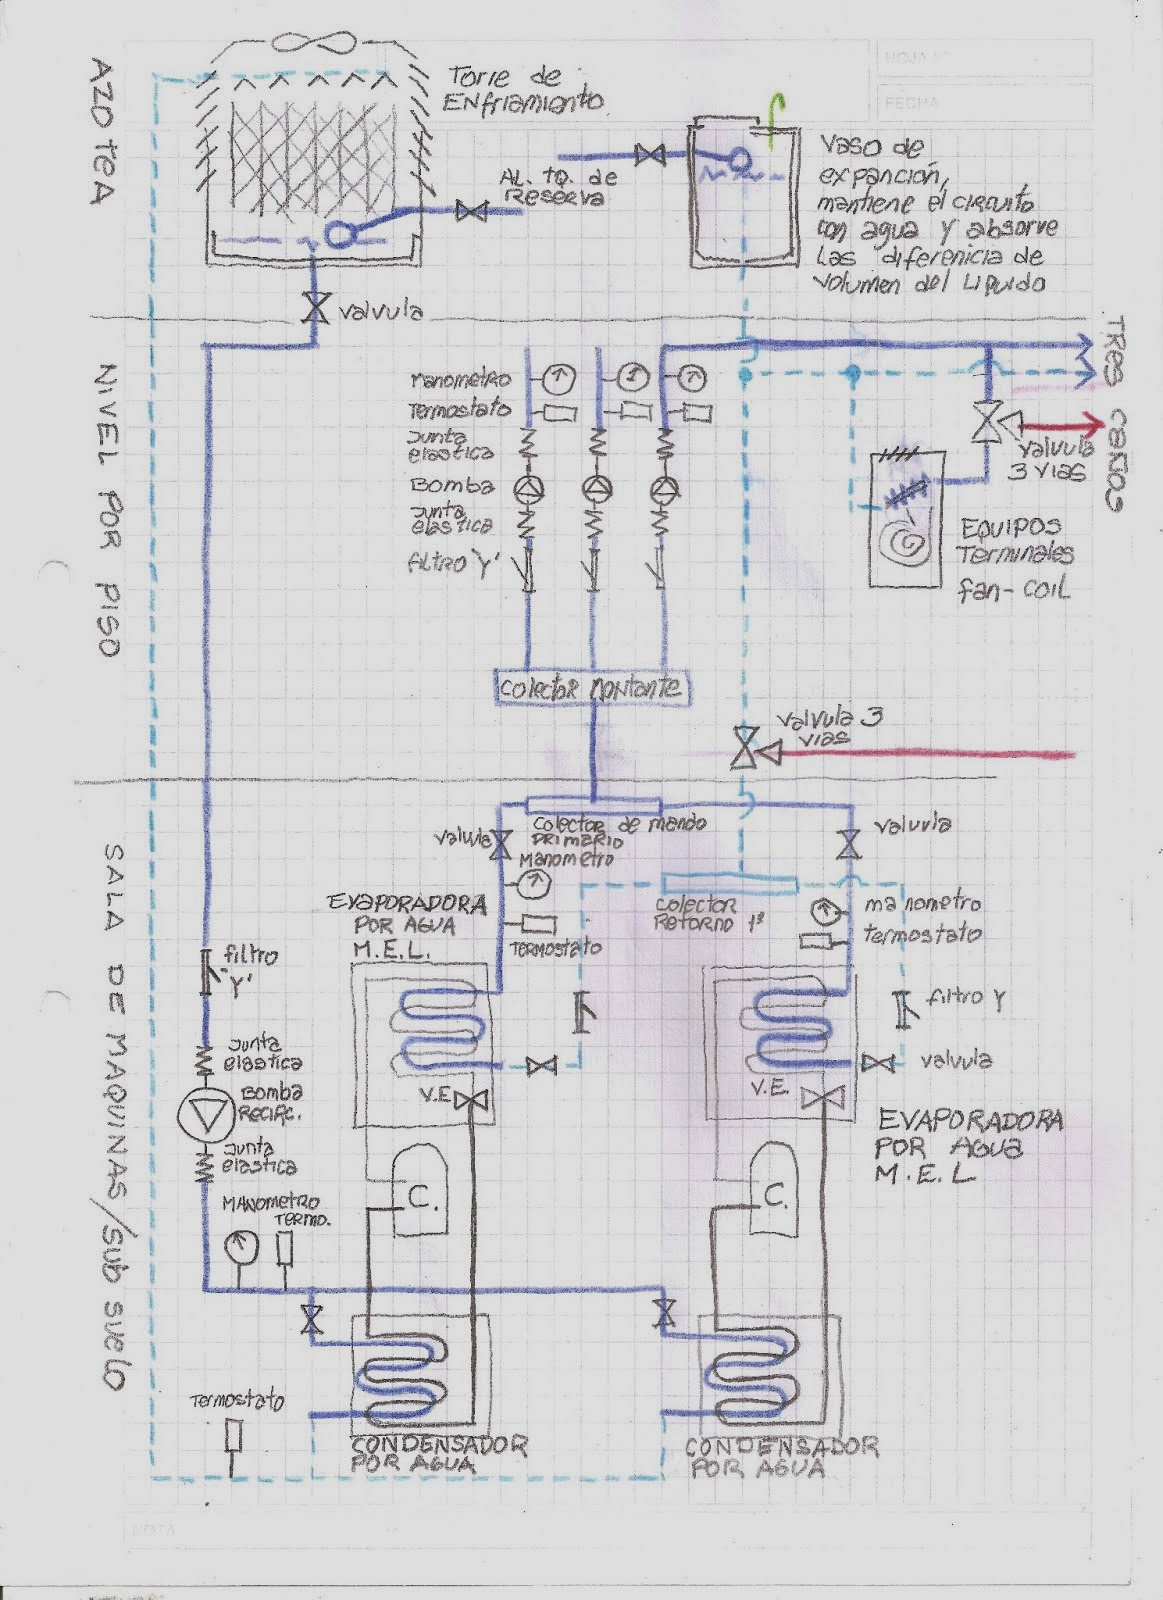 HOJA Nº
FECHA
AZOTEA
Torre de
ENfriamiento
AL. TQ. de
Reserva
Vaso de
expanción,
mantiene el circuito
con agua y absorve
Las diferenicia de
volumen del Lipuido
valvula
NIVEL POR PISO
TRES CAÑOS
manometro
Termostato
Junta
elastica
Bomba
Junta
elastica
filtro 'Y'
valvula
3 vias
EQUIPOS
Terminales
fan-COIL
Colector Montante
valvula 3
vias
SALA DE MAQUINAS/sub suelo
valvula
Colector de mando
primario
manometro
valuvla
EVAPORADORA
POR AGUA
M.E.L.
TERMOSTATO
Colector
Retorno 1º
manometro
termostato
filtro
'Y'
filtro Y
valvula
Junta
elastica
Bomba
Recirc.
Junta
elastica
V.E.
V.E.
EVAPORADORA
POR AGUA
M.E.L
C.
C.
MANometro
Termo.
Termostato
CONDENSADOR
POR AGUA
CONDENSADOR
POR AGUA
NOTA